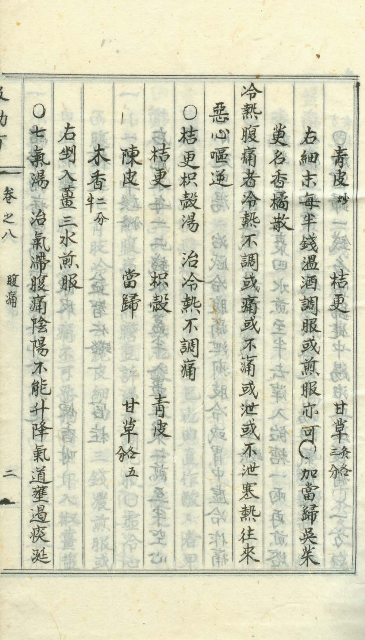 青皮炒 桔更 甘草炙各三分
右細末每半錢溫酒調服或煎服亦可〇加當歸吳茱
萸名香橘散
冷熱腹痛者冷熱不調或痛或不痛或泄或不泄寒熱往來
惡心嘔逆
〇桔更枳殼湯 治冷熱不調痛
桔更 枳殼 青皮
陳皮 當歸 甘草各五分
木香二分半
右剉入薑三水煎服
〇七氣湯 治氣滯腹痛陰陽不能升降氣道壅過痰涎
卷之八 腹痛 二